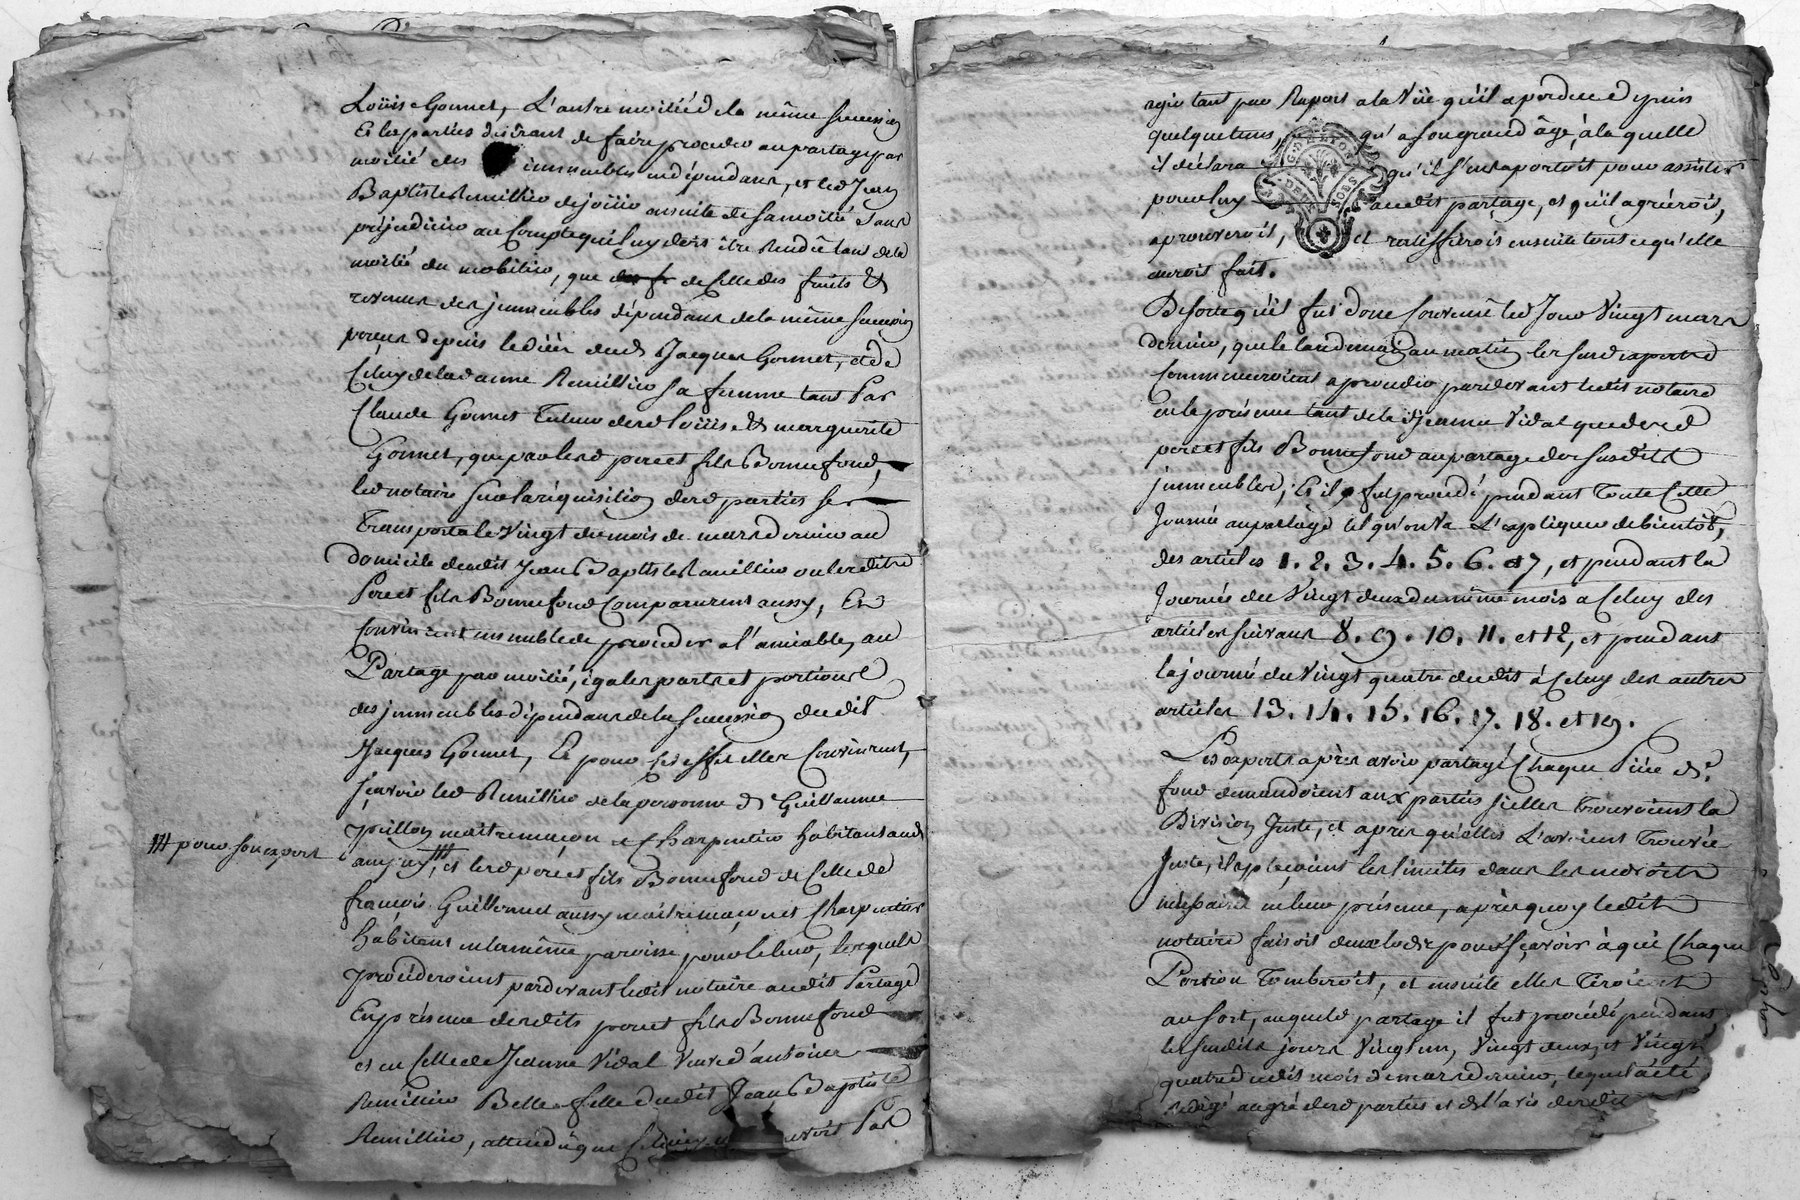 Loüis Gonnet, L'autre moitié de la même sucession
Et les parties desirant de faire proceder au partage par
moitié des immeubles indépendans, et led. Jean
Baptiste Remillieu de joüir ensuite de sa moitié sans
préjudicier au Compte qui luy doit être Rendû tant de la
moitié du mobilier, que de Celle des fruits et
revenus des jmmeubles dépendans de la même sucession
perçus depuis le décès dud. Jacques Gonnet, et de
Celuy de lad. anne Remillieu sa femme tant Par
Claude Gonnet Tuteur desd. loüis et marguerite
Gonnet, que par lesd. pere et fils Bonnefond,
led. notaire sur la réquisition desd. parties se
Transporta le Vingt du mois de mars dernier au
domicile dudit Jean Baptiste Remillieu ou lesdits
Pere et fils Bonnefond Comparurent aussy, Et
Convinrent ensemble de proceder a l'amiable, au
Partage par moitié, égales parts et portions
des jmmeubles dépendans de la sucession dudit
Jacques Gonnet, Et pour cet effet elles Convinrent,
sçavoir led. Remillieu de la personne de Guillaume
maitre maçon et Charpentier habitant aud.
pour son expert
et lesd. pere et fils Bonnefond de Celle de
françois Guillermet aussy maitre maçon et Charpentier
habitant en la même paroisse pour le leur, lesquels
procéderoient pardevant ledit notaire audit Partage
En présence desdits pere et fils Bonnefond
et en Celle de Jeanne Vidal Veuve d'antoine
Remillieu Belle fille dudit Jean Baptiste
Remillieu, attendû que Par
agir tant par Raport a la Vüe qu'il a perdue depuis
quelque tems, qu' a son grand âge, à la quelle
il déclara qu'il s'en raportoit pour assister
pour luy audit partage, et qu'il agréeroit,
aprouveroit, et ratiffieroit ensuite tout ce qu'elle
auroit fait.
De sorte qu'il fut donc Convenû led. Jour Vingt mars
dernier, que le landemain au matin les susd. experts
Commenceroient a proceder pardevant ledit notaire
en la présence tant de la d. jeanne Vidal que desd.
pere et fils Bonnefond au partage des susdits
jmmeubles; Et il y fut procédé pendant Toute Celle
Journée au partage tel qu'on va L'expliquer de bientôt,
des articles 1. 2. 3. 4. 5. 6. et 7, et pendant la
Journée du Vingt deux du même mois a Celuy des
articles suivans 8. 9. 10. 11. et 12, et pendant
la journée du Vingt quatre dudit à Celuy des autres
articles 13. 14. 15. 16. 17. 18. et 19.
Les experts après avoir partagé Chaque Piéce de
fond demandoient aux parties si elles Trouvoient la
Division Juste, et après qu'elles L'avoient Trouvée
Juste, il plaçoient les limites dans les endroits
necessaires en leur présence, après quoy ledit
notaire faisoit deux lods pour sçavoir à qui Chaque
Portion Tomberoit, et ensuite elles Tiroient
au sort, auquel partage il fut procédé pendant
les susdits jours Vingt un, Vingt deux, et Vingt
quatre dudit mois de mars dernier, lequel a été
Redigé au gré desd. parties et de l'avis desdits